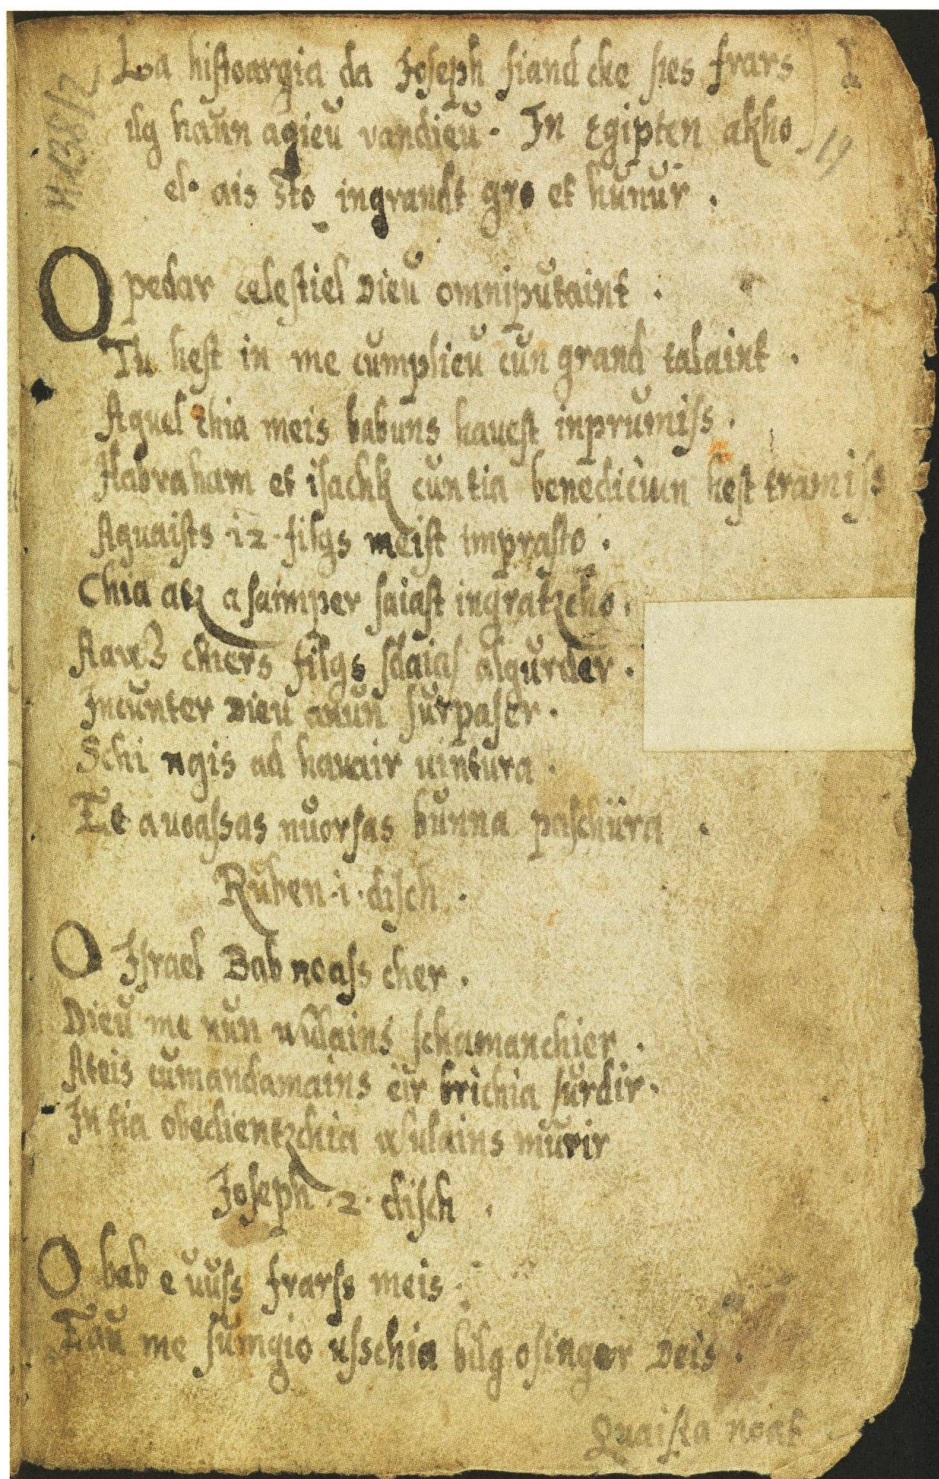 La histoargia da Joseph siand che sies frars
ilg haun agieu vandieu. In Egipten akho
el ais sto in grandt gro et hunur.
O pedar celestiel Dieu omniputaint.
Tu hest in me cumplieu cun grand talaint.
Aquel chia meis babuns havest inprumiss.
Habraham et isachk cun tia benedictiun hest tramiss
Aquaists .12. filgs meist imprasto.
Chia atz a saimper saiast ingratzcho.
chiers filgs sdaias algurder.
Incunter Dieu survaser.
Schi ngis ad havair vintura.
Et a voassas nuorsas bunna paschüra.
Ruben .1. disch.
O Israel Bab noass cher.
Dieu me nun wulains schamanchier.
Ateis cumandamains eir brichia surdir.
In tia obedientzchia wulains murir
Joseph .2. disch.
O bab e vuss frarss meis.
Eau me sumgio usschia bilg osinger Deis.
Quaista noat
14
4.138/2